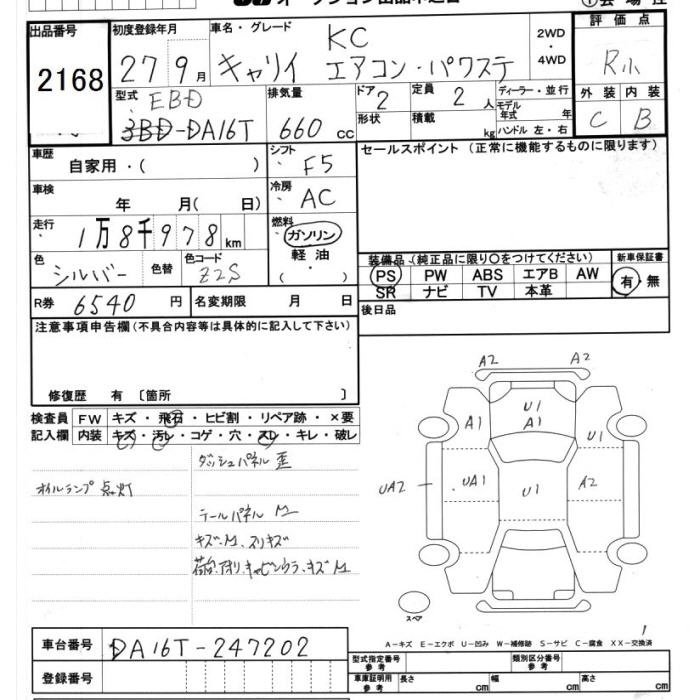 出品番号 初度登録年月 車名・グレード KC 2WD ・ 4WD 評価点
2168 27 9月 キャリイ エアコン・パワステ R小
型式 EBD 排気量 ドア 2 定員 2人 ディーラー・並行 外装 内装
3BD-DA16T 660cc 形状 積載 kg モデル年式 年 ハンドル 左・右 C B
車歴 自家用・( ) シフト F5 セールスポイント (正常に機能するものに限ります)
車検 年 月( 日) 冷房 AC
走行 1万8千978km 燃料 ガソリン
軽油
・
( )
色 シルバー 色替 色コード Z2S
装備品(純正品に限り○をつけてください) 新車保証書
PS PW ABS エアB AW 有・無
SR ナビ TV 本革
R券 6540円 名変期限 月 日 後日品
注意事項申告欄(不具合内容等は具体的に記入して下さい)
修復歴 有 〔箇所 〕
検査員 FW キズ・飛石・ヒビ割・リペア跡・×要
記入欄 内装 キズ・汚レ・コゲ・穴・スレ・キレ・破レ
ダッシュパネル 歪
オイルランプ 点灯
テールパネル M
キズ・M、スリキズ
荷台、アオリ、キャビンウラ、キズM
A2 A2
A1 U1 A1 U1
UA2 UA1 U1 A2
スペア
1
A−キズ E−エクボ U−凹み W−補修跡 S−サビ C−腐食 XX−交換済
車台番号 DA16T-247202
登録番号
型式指定番号 参考 類別区分番号 参考
車庫証明用 参考 長さ cm 幅 cm 高さ cm